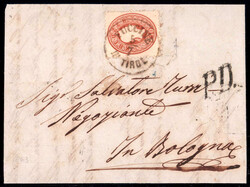 TIROL
P.D.
Sigr. Salvatore
Negoziante
In Bologna